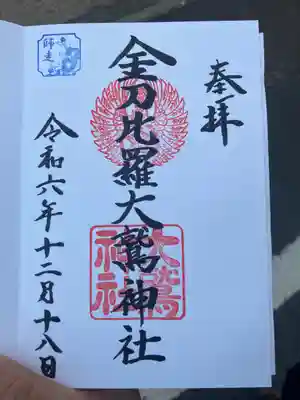 奉拝
金刀比羅大鷲神社
大鷲
神社
令和六年十二月十八日
師走